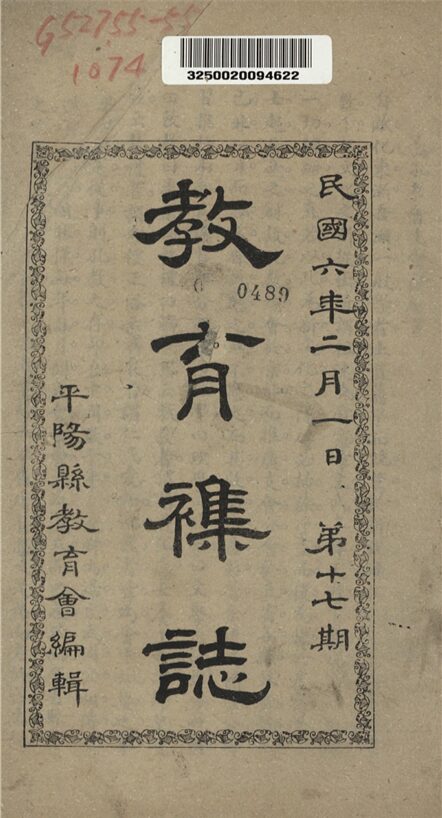 G52755-55
1074
3250020094622
民國六年二月一日 第十七期
教育襍誌
0489
平陽縣教育會編輯